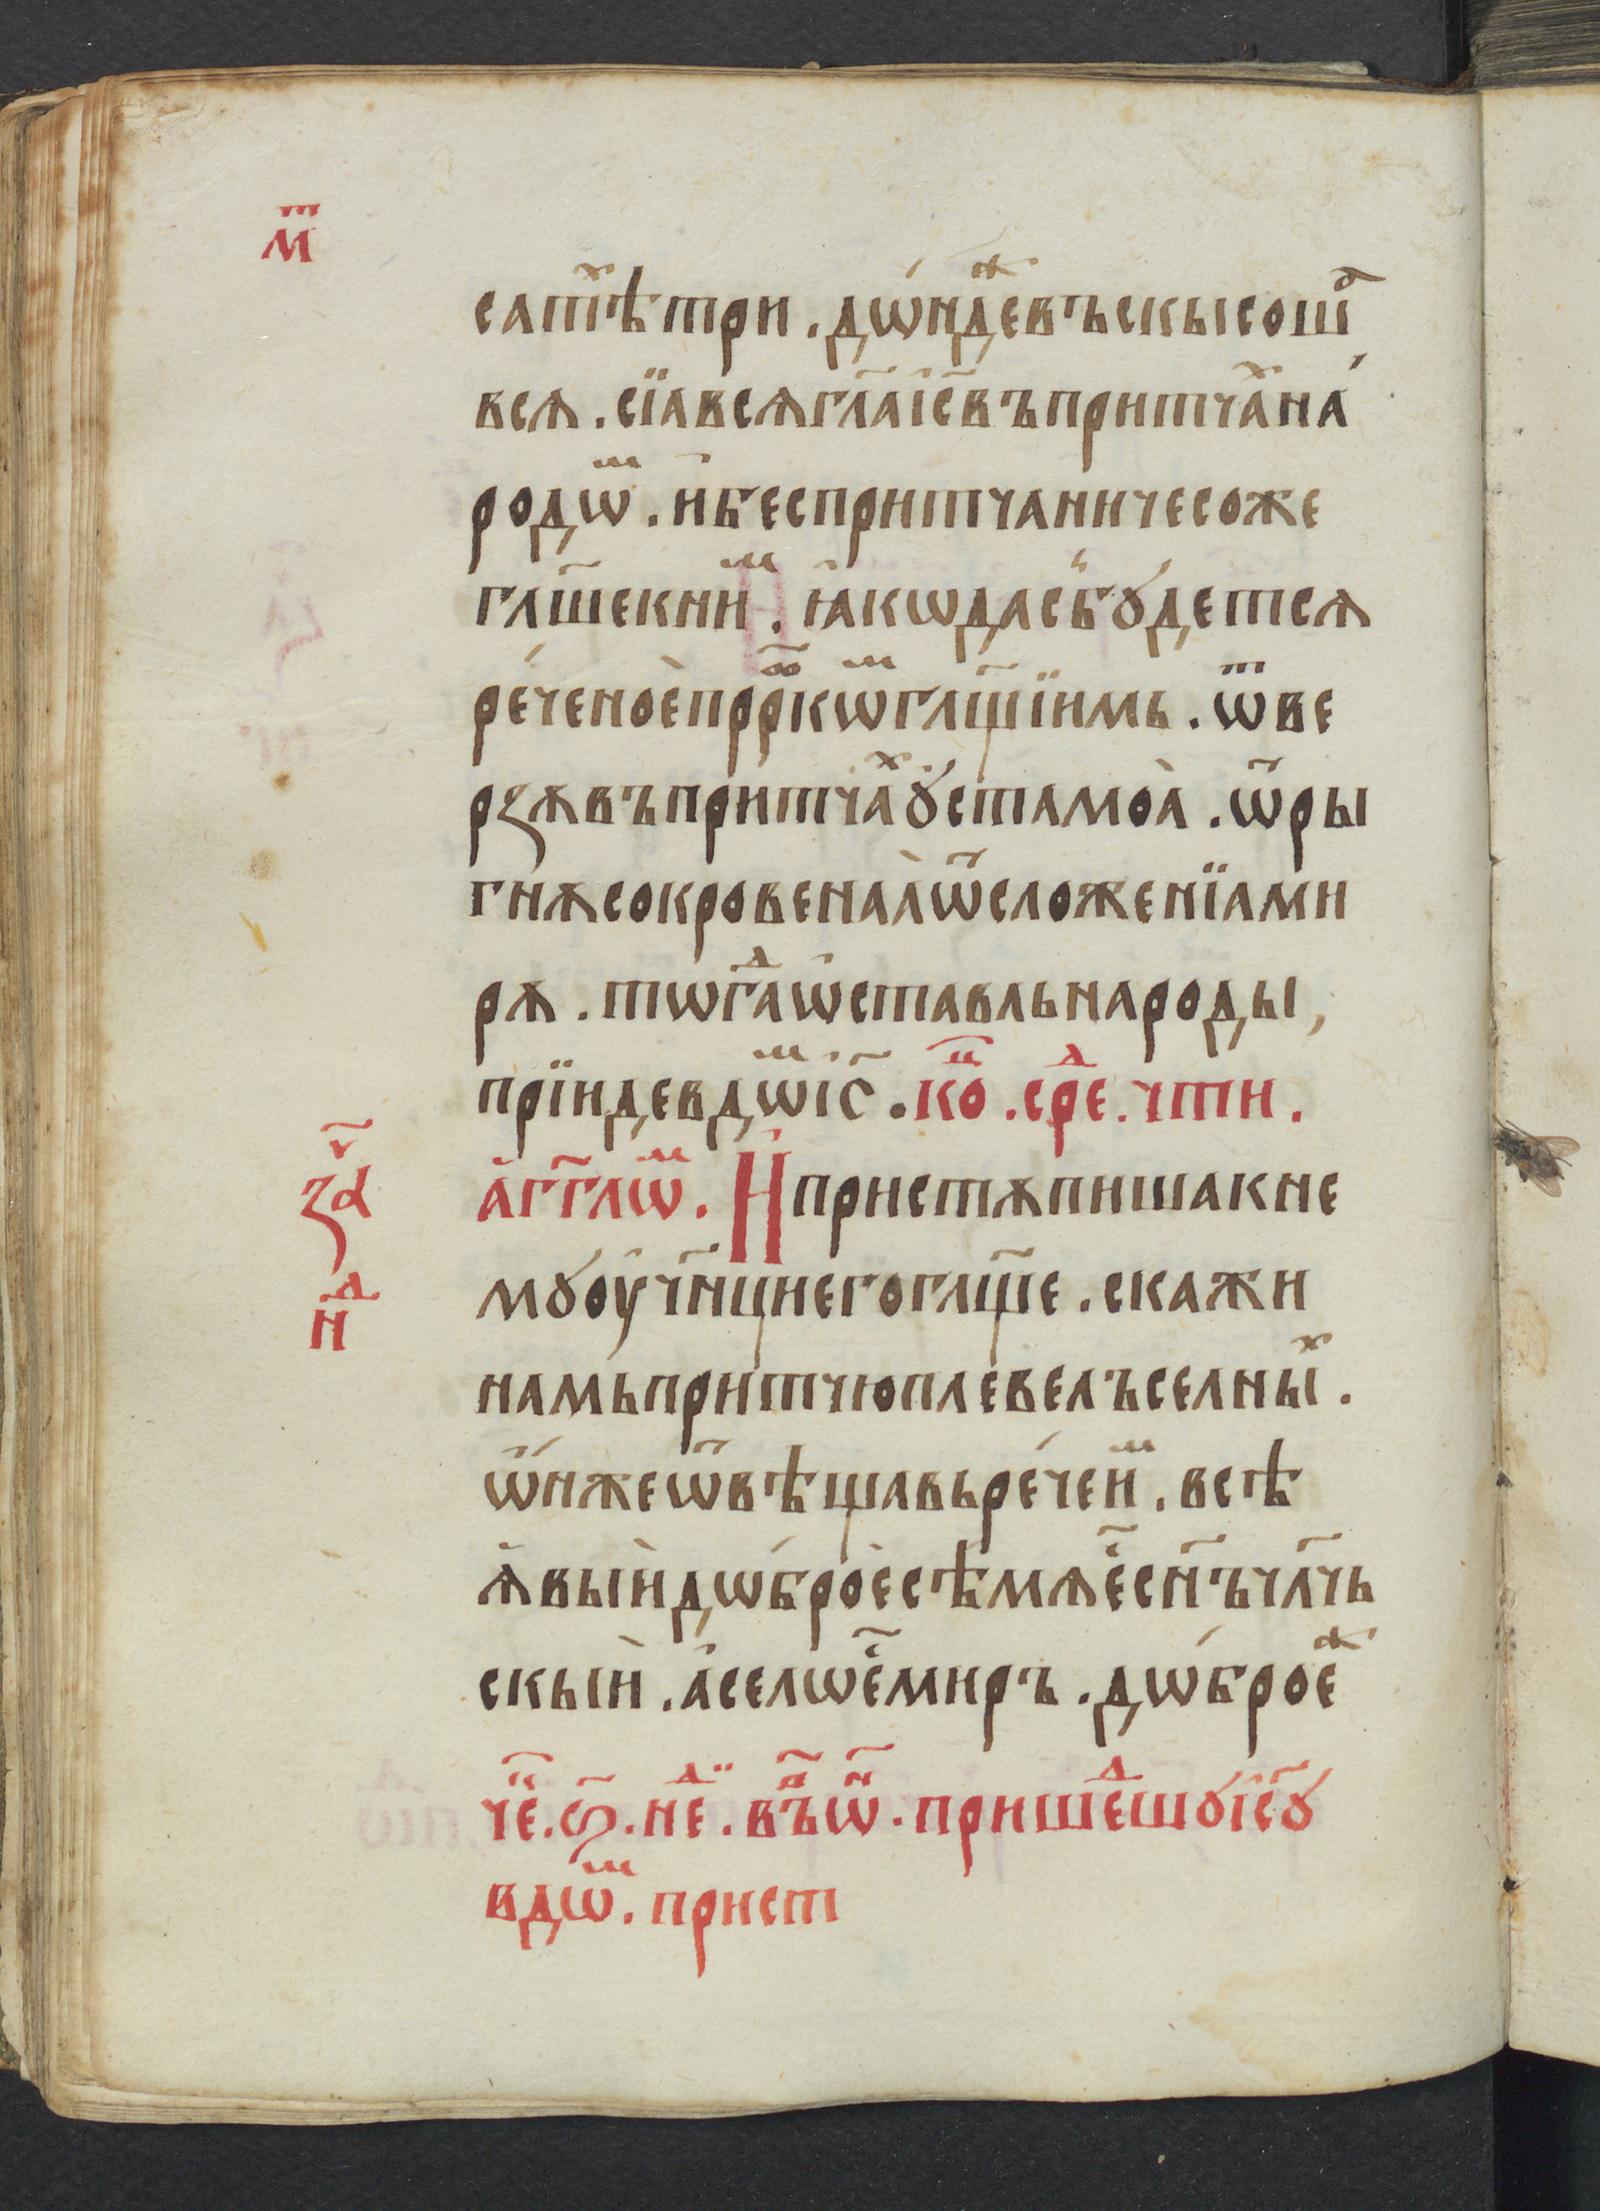 мⷮ
сатⷯѣтри . дѡ́ндⷤевъскысошⷣ
всѧ . сїавсѧгл҃аіс҃въпритчаⷯна́
родѡⷨ . и҆беспритчаничесоже
гл҃шекниⷨ . ꙗкѡдасбꙋ́детсѧ
ре́ченоѐпррⷪ҇кѡⷨгл҃щїимь . ѿве
рзѫвъпритчаⷯꙋ҆стамоа̀ . ѿры
гнѫсокровенаа̀ѿсложенїами
рѧ . тѡгⷣаѡ҆ставльнароды ,
прїидевдѡⷨіс҃ . коⷰ҇ . срⷣе . чти .
а҆гг҃лѡⷨ . И҆пристѫпишакне
зⷱ҇а
мꙋоу҆чн҃циегогл҃ще . скажи
нⷣ
намьпритчюплевелъселныⷯ .
ѡ҆́нжеѿвѣщавьре́чеиⷨ . всѣ
ѧ҆выйдѡ́броѐсѣмѧе҆сⷭ҇н҃ъчл҃чь
скый . а҆селѡе҆ⷭ҇миръ . дѡ́броеⷤ
чеⷮ . ѕ҃ . неⷣ . въⷪ҇ѡⷩ҇ . пришеⷣшꙋіс҃ꙋ
вдѡⷨ . прист